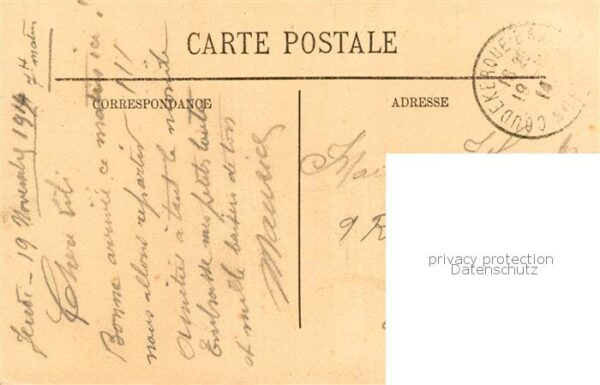 CARTE POSTALE
CORRESPONDANCE
ADRESSE
COUDEKERQUE-
19
14
Jeudi - 19 Novembre 1914 7H matin
Cheri Lili
Bonne arrivée ce matin ici !
nous allons repartir !!!
Amitiés à tout le monde
Embrasse mes petits
et mille baisers de ton
Maurice
9 R
privacy protection
Datenschutz